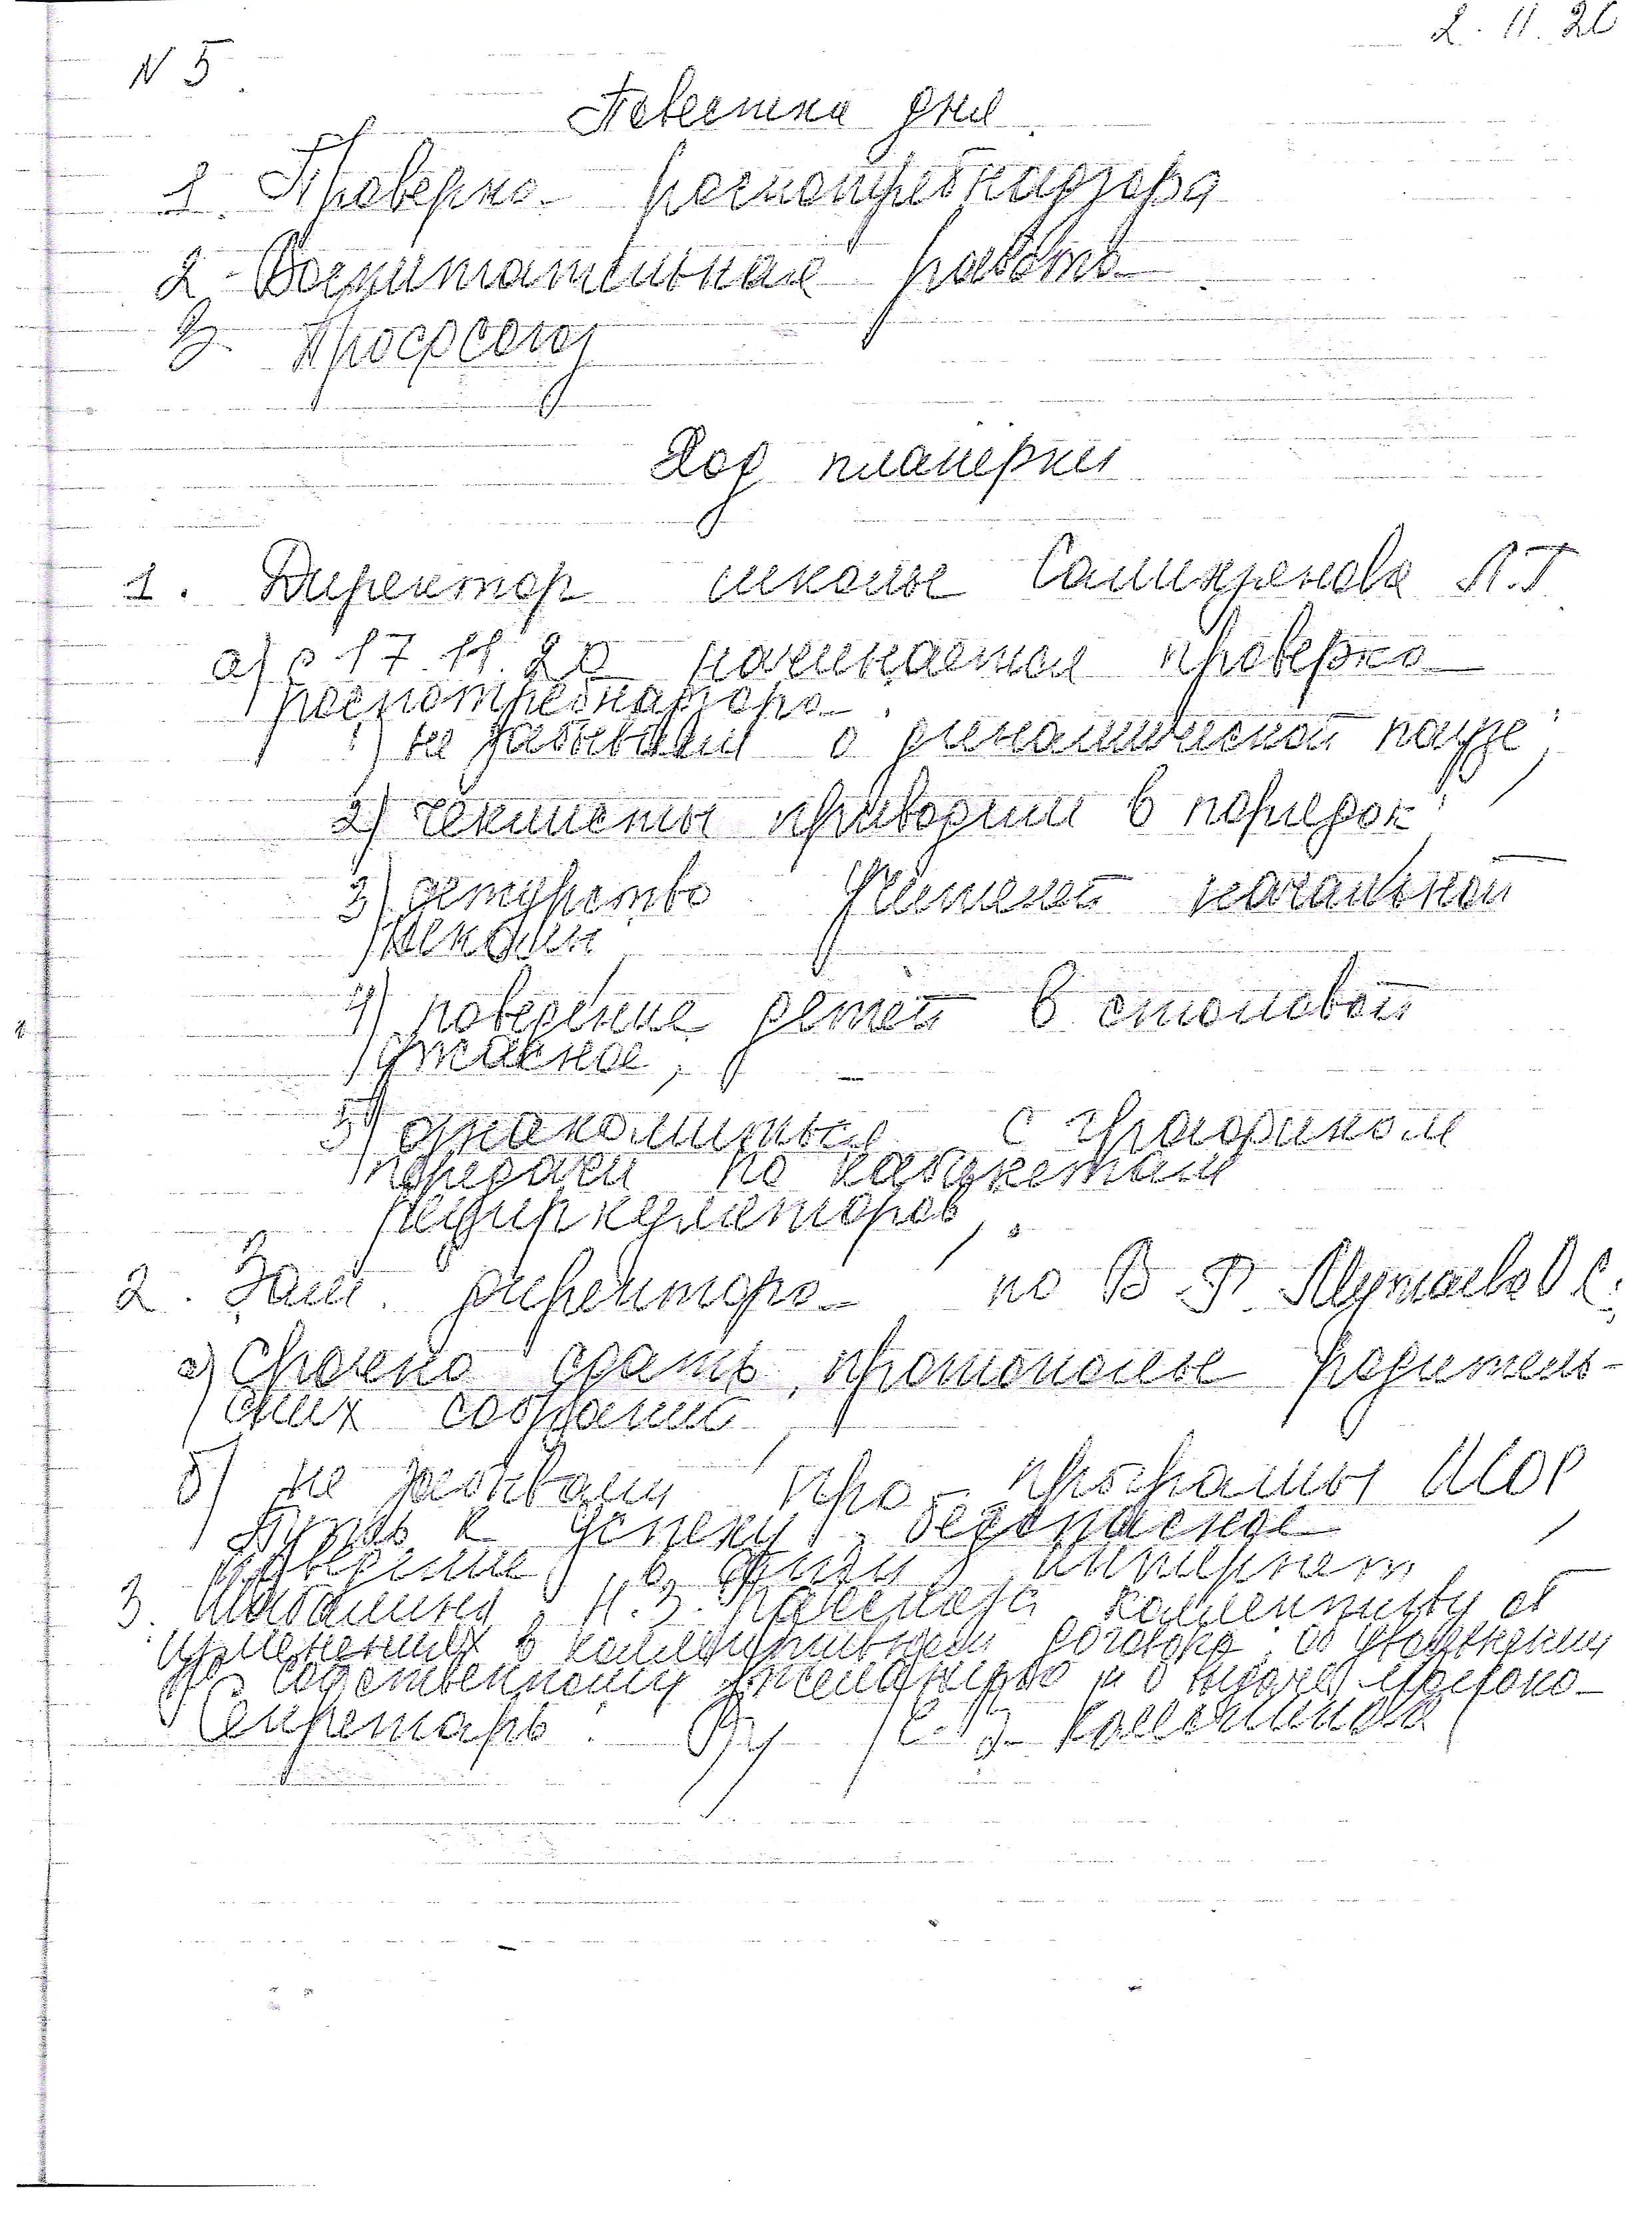 N 5.
2. 11. 20
Повестка дня.
1. Проверка роспотребнадзора
2. Воспитательная работа.
3. Профсоюз
Ход планёрки
1. Директор школы Л.Г.
а) с 17.11.20 начинается проверка
роспотребнадзора.
1) не забываем о динамической паузе;
2) чеклисты приводим в порядок;
3) дежурство учителей начальной
школы
4) поведение детей в столовой
ужасное;
5) ознакомиться с графиком
передачи по кабинетам
рециркуляторов;
2. Зам. директора по В.Р.
а) срочно сдать протоколы родитель-
ских собраний
б) не забываем про программы ШОР,
Путь к успеху, безопасное
поведение в сети интернет
3. Н.З. коллективу об
изменениях в договоре, об увольнении
по собственному желанию и о выдаче молока
Секретарь: